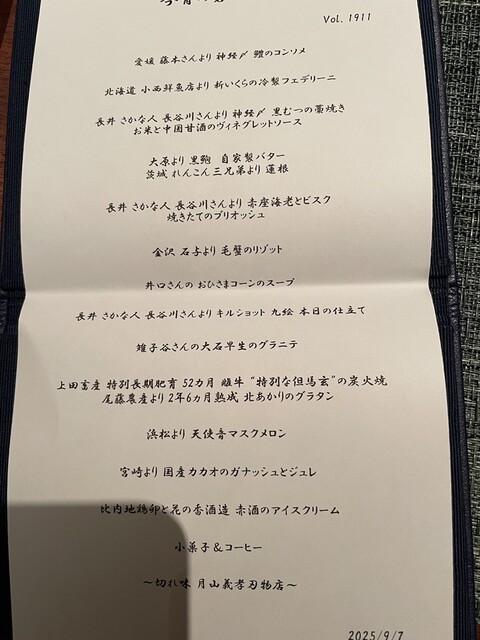 Vol. 1911
愛媛 藤本さんより 神経〆 鱧のコンソメ
北海道 小西鮮魚店より 新いくらの冷製フェデリーニ
長井 さかな人 長谷川さんより 神経〆 黒むつの藁焼き
お米と中国甘酒のヴィネグレットソース
大原より 黒鮑 自家製バター
茨城 れんこん三兄弟より 蓮根
長井 さかな人 長谷川さんより 赤座海老とビスク
焼きたてのブリオッシュ
金沢 石与より 毛蟹のリゾット
井口さんの おひさまコーンのスープ
長井 さかな人 長谷川さんより キルショット 九絵 本日の仕立て
雑子谷さんの大石早生のグラニテ
上田畜産 特別長期肥育 52カ月 雌牛 "特別な但馬玄"の炭火焼
尾藤農産より 2年6ヵ月熟成 北あかりのグラタン
浜松より 天使音マスクメロン
宮崎より 国産カカオのガナッシュとジュレ
比内地鶏卵と花の香酒造 赤酒のアイスクリーム
小菓子&コーヒー
～切れ味 月山義孝刃物店～
2025/9/7